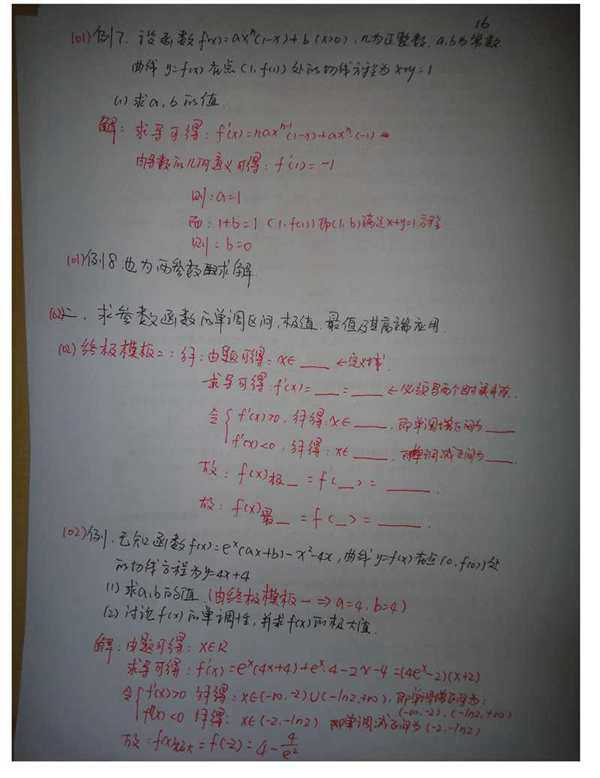 16
(01)例7. 设函数 f(x)=axⁿ(1-x)+b (x>0), n为正整数, a,b为常数
曲线 y=f(x) 在点(1,f(1))处的切线方程为x+y=1
(1)求a,b的值.
解: 求导可得: f'(x)=naxⁿ⁻¹(1-x)+axⁿ·(-1)
由导数的几何意义可得: f'(1)=-1
则: a=1
而: 1+b=1 (1,f(1))即(1,b)满足x+y=1方程
则: b=0
(01)例8.也为两参数 求解.
(02)二、求参数函数的单调区间,极值.最值及其高端应用.
(02)终极模板二: 解: 由题可得: x∈ ___ ←定义域.
求导可得: f'(x)= ___ = ___ ←必须写两个
令{ f'(x)>0, 解得:x∈ ___, 即单调增区间为 ___
f'(x)<0, 解得: x∈ ___, 即单调减区间为 ___.
故: f(x)极_ = f(_) = ___.
故: f(x)最_ = f(_) = ___.
(02)例1.已知函数f(x)=eˣ(ax+b)-x²-4x, 曲线y=f(x)在点(0,f(0))处
的切线方程为y=4x+4
(1)求a,b的值. (由终极模板一⇒a=4, b=4)
(2)讨论f(x)的单调性,并求f(x)的极大值.
解: 由题可得: x∈R
求导可得: f'(x)=eˣ(4x+4)+eˣ·4-2x-4=(4eˣ-2)(x+2)
令{ f'(x)>0 解得: x∈(-∞,-2)∪(-ln2,+∞), 即单调增区间为:
(-∞,-2), (-ln2,+∞)
f'(x)<0 解得: x∈(-2,-ln2) 即单调减区间为(-2,-ln2)
故: f(x)极大=f(-2)=4-4/e²